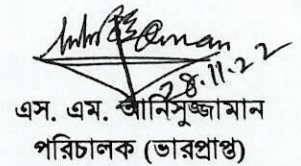 28.11.22
এস. এম. আনিসুজ্জামান
পরিচালক (ভারপ্রাপ্ত)